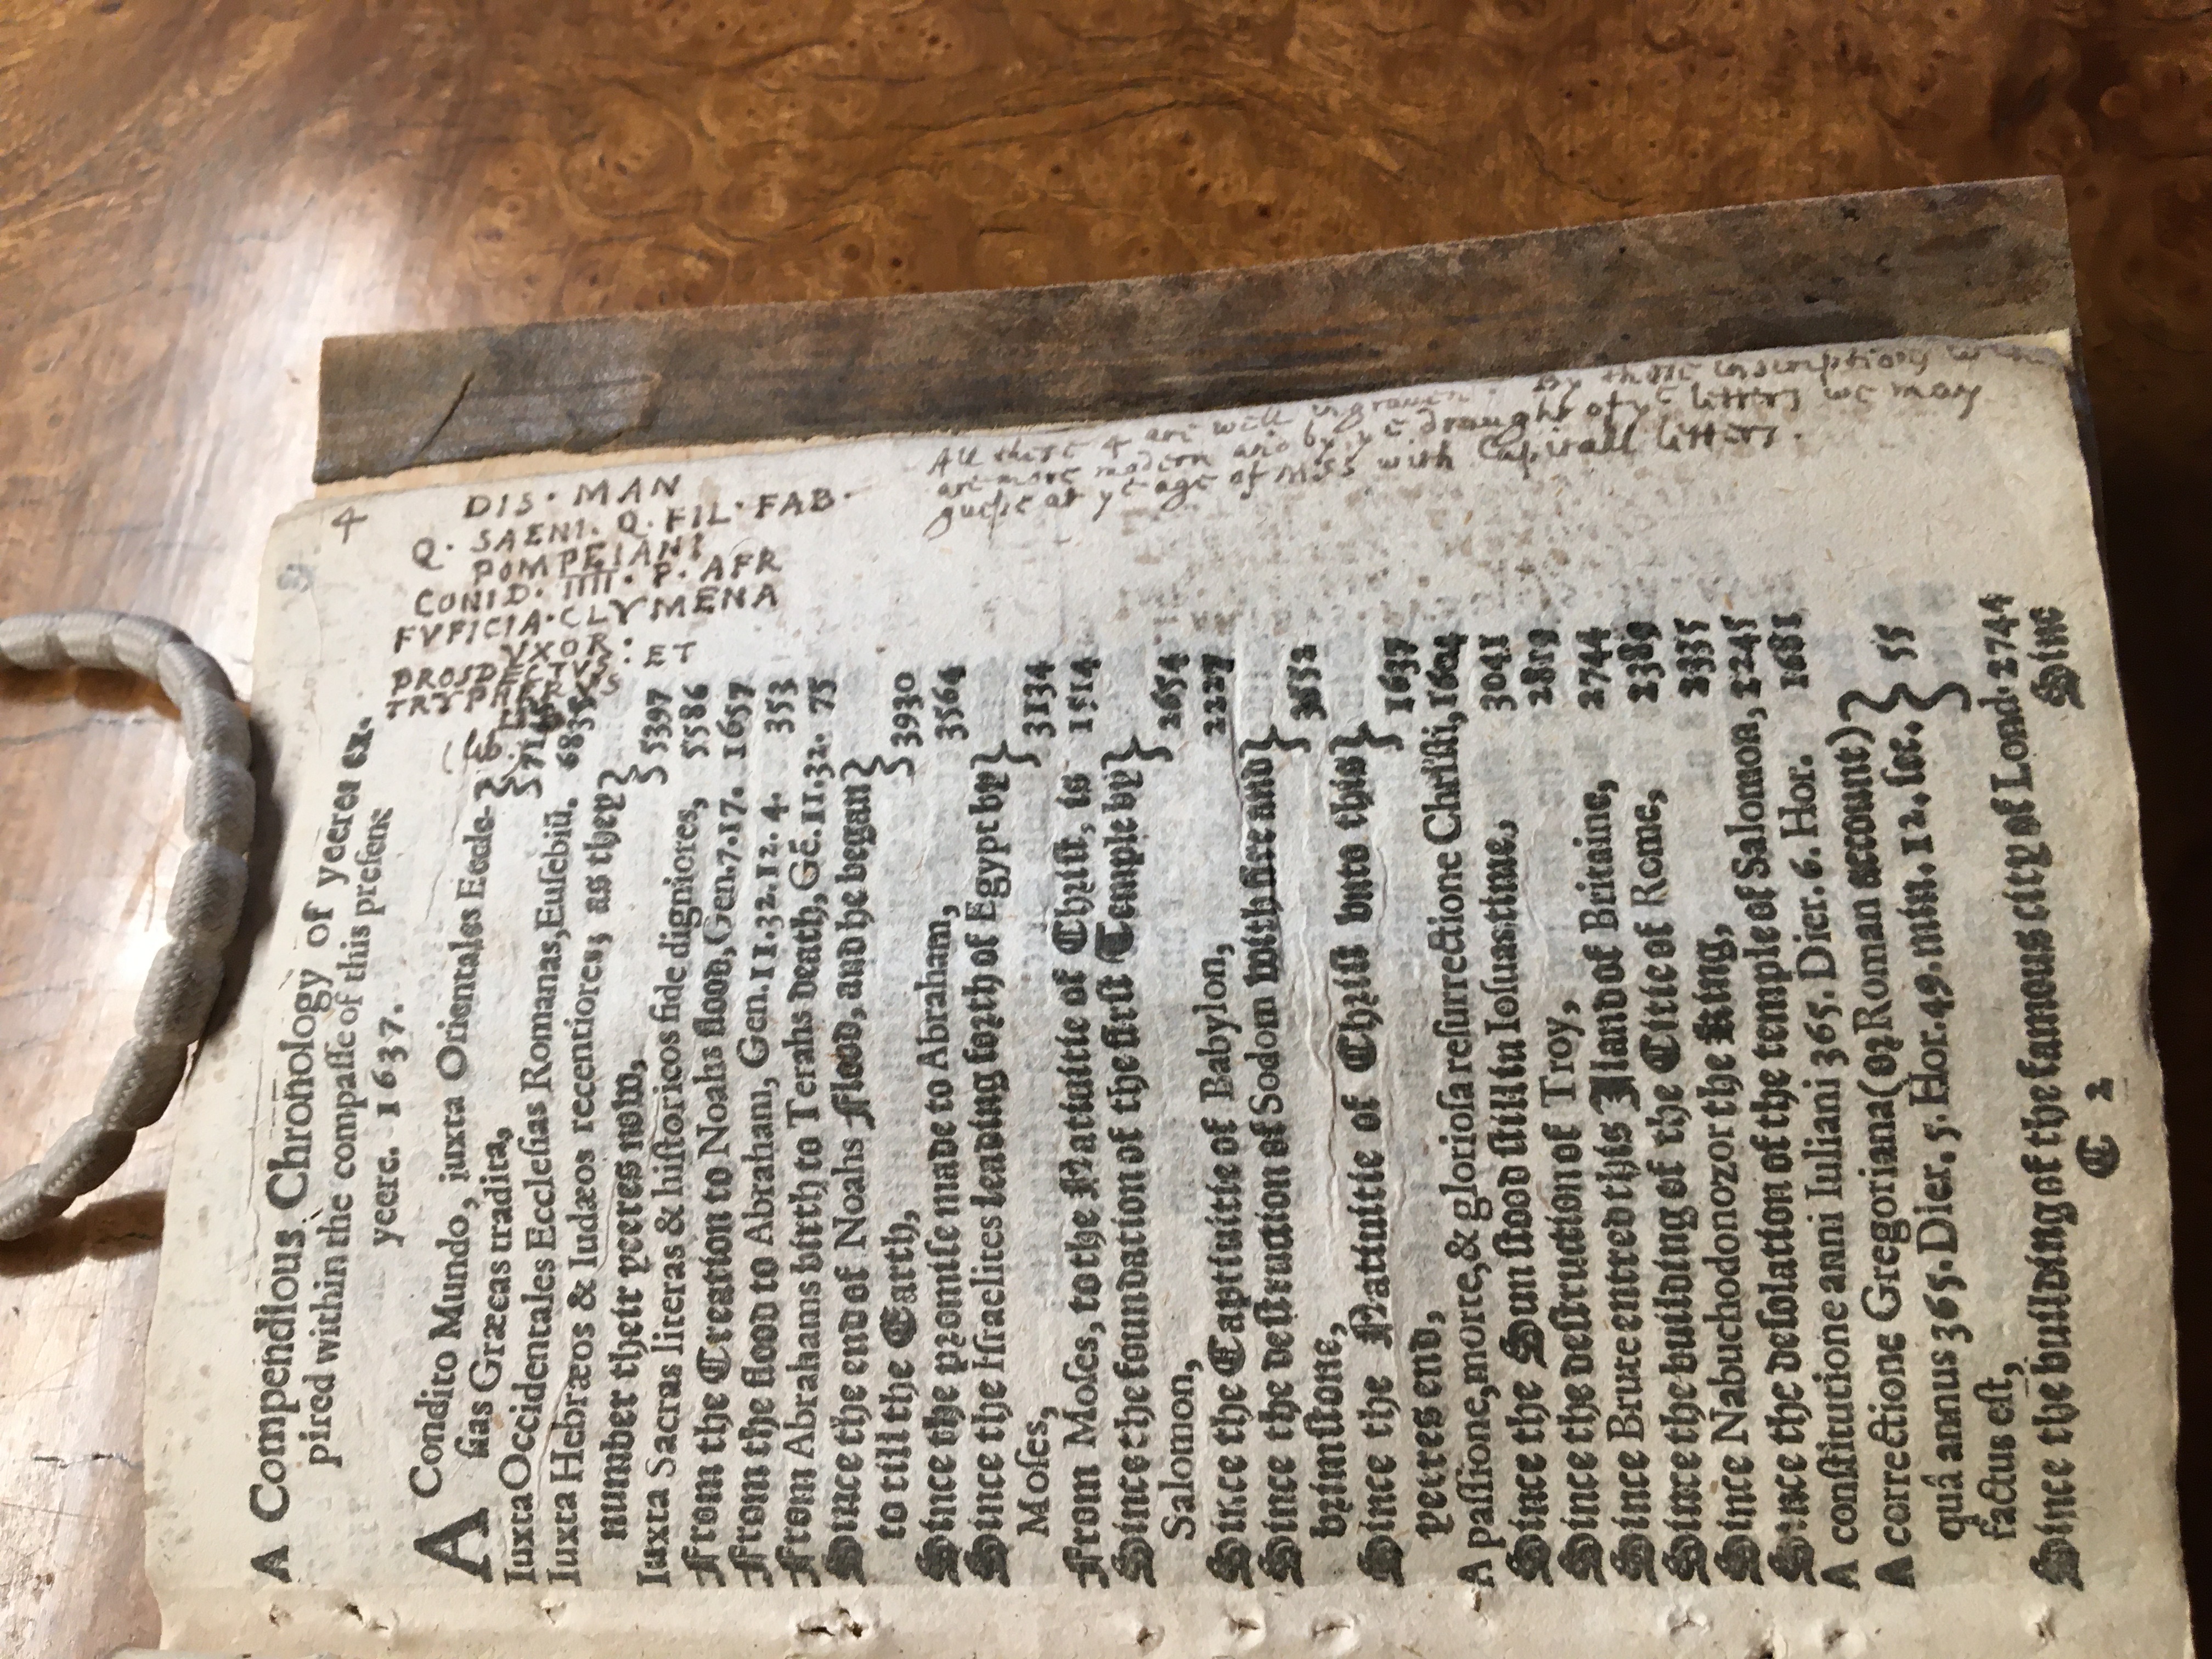 A Compendious Chronology of yeeres ex-
pired within the compasse of this present
yeere. 1637.
A Condito Mundo, juxta Orientales Eccle-
sias Græcas tradita,
Iuxta Occidentales Ecclesias Romanas, Eusebiũ.
Iuxta Hebræos & Iudæos recentiores, as they } 5397
number their yeeres now,
Iuxta Sacras literas & historicos fide digniores, 5586
From the Creation to Noahs flood, Gen. 7. 17. 1657
From the flood to Abraham, Gen. 11. 32. 12. 4. 353
From Abrahams birth to Terahs death, Gẽ. 11. 32. 75
Since the end of Noahs Flood, and he began } 3930
to till the Earth,
Since the promise made to Abraham, 3564
Since the Israelites leading forth of Egypt by } 3134
Moses,
From Moses, to the Nativitie of Christ, is 1514
Since the foundation of the first Temple by } 2654
Salomon,
Since the Captivitie of Babylon, 2227
Since the destruction of Sodom with fire and }
brimstone,
Since the Nativitie of Christ unto this } 1637
yeeres end,
A passione, morte, & gloriosa resurrectione Christi, 1604
Since the Sun stood still in Iosuas time, 3041
Since the destruction of Troy, 2819
Since Brute entred this Iland of Britaine, 2744
Since the building of the Cittie of Rome, 2389
Since Nabuchodonozor the King, 2335
Since the desolation of the temple of Salomon, 2245
A constitutione anni Iuliani 365. Dier. 6. Hor. 1681
A correctione Gregoriana (or Roman account) }
quâ annus 365. Dier. 5. Hor. 49. min. 12. sec. } 55
factus est,
Since the building of the famous city of Lond. 2744
C 2 Since
4
DIS · MAN
Q · SAENI · Q · FIL · FAB ·
POMPEIANI
CONID · IIII · P · AFR
FVFICIA · CLYMENA
VXOR : ET
All these 4 are well ingraven. By these inscriptions
are more modern and by yᵉ draught of yᵉ letters we may
guesse at yᵉ age of MSS with Capitall letters.